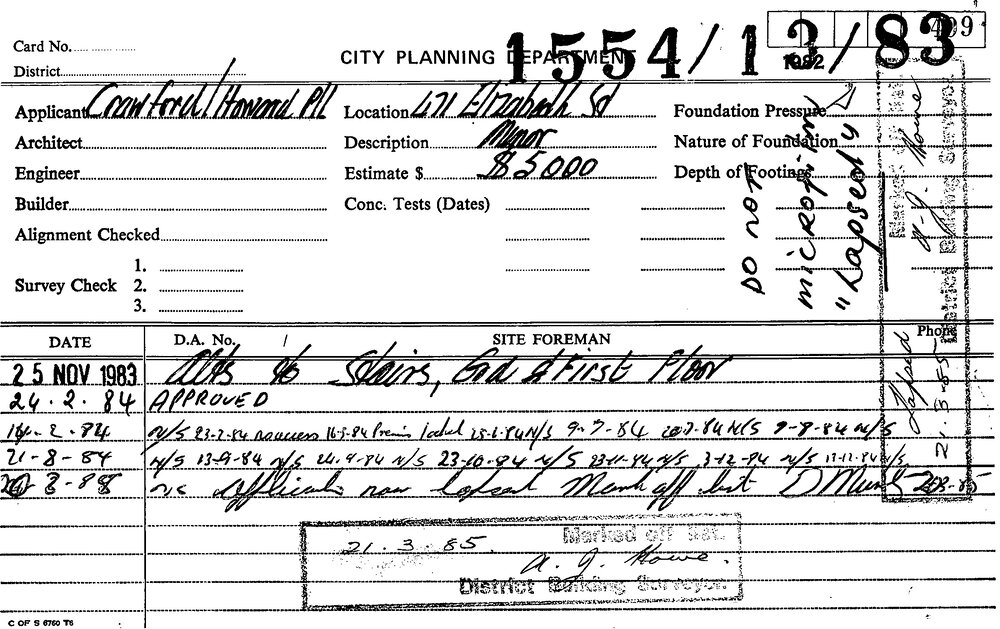 Card No.
499
CITY PLANNING DEPARTMENT
1554/13/83
1982
District
Applicant Crawford/Howard P/L Location 471 Elizabeth Sd Foundation Pressure
Architect Description Minor Nature of Foundation
Engineer Estimate $ $5000 Depth of Footings
Builder Conc. Tests (Dates)
Alignment Checked
1.
Survey Check 2.
3.
DO NOT
microfilm
"Lapsed"
Marked off list
A. J. Howe
District Building Surveyor
Lapsed 21-3-85
DATE D.A. No. / SITE FOREMAN Phone
25 NOV 1983 Alts to Stairs, Gnd & First Floor
24.2.84 APPROVED
14-2-84 N/S 23-2-84 no access 16-3-84 Premis locked 25-6-84 N/S 9-7-84 N/S 9-8-84 N/S
21-8-84 N/S 13-9-84 N/S 24-9-84 N/S 23-10-84 N/S 23-11-84 N/S 3-12-84 N/S
now lapsed Mark off list
21.3.85. Marked off list.
A. J. Howe.
District Building Surveyor.
C OF S 6760 T6